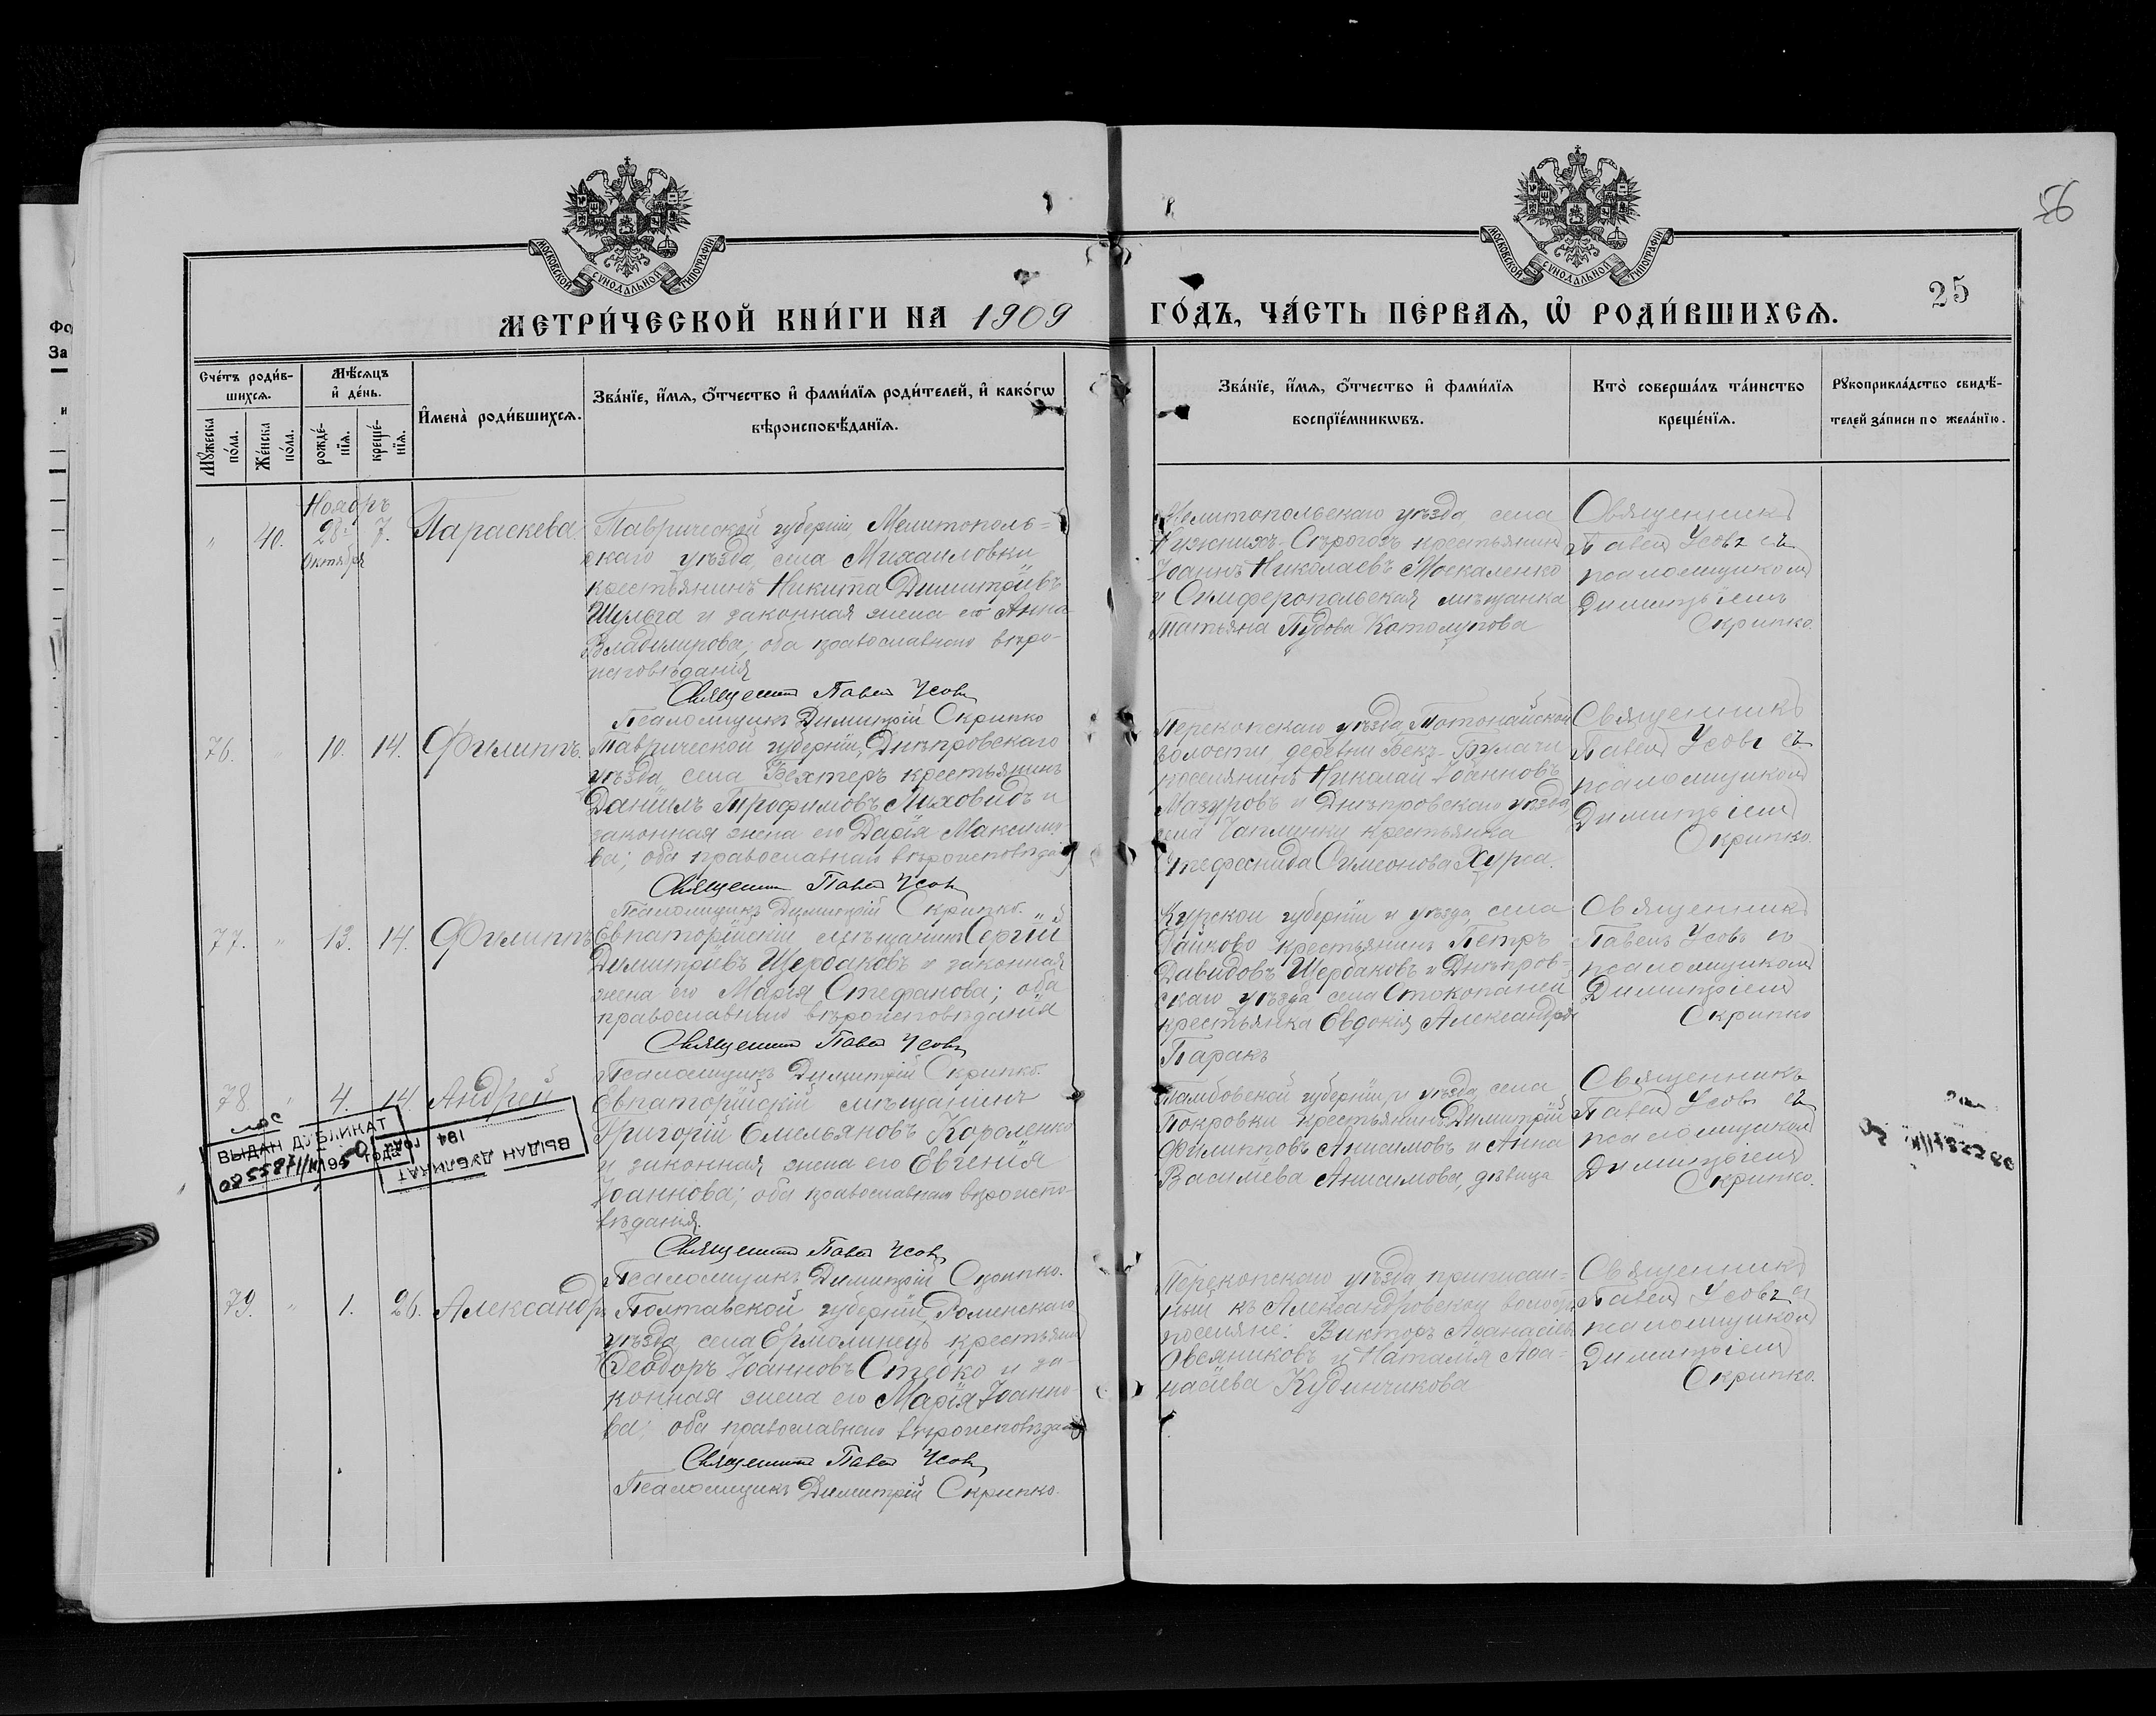 56
МОСКОВСКОЙ СѴНОДАЛЬНОЙ ТИПОГРАФІИ
МОСКОВСКОЙ СѴНОДАЛЬНОЙ ТИПОГРАФІИ
25
МЕТРИ́ЧЕСКОЙ КНИ́ГИ НА 1909 ГО́ДЪ, ЧА́СТЬ ПЕ́РВАЯ, Ѡ҆ РОДИ́ВШИХСЯ.
Сче́тъ роди́в-
шихся.
Мꙋ́жеска
по́ла.
Же́нска
по́ла.
Мѣ́сяцъ
и҆ де́нь.
рожде́-
нїя.
креще́-
нїя.
И҆мена̀ роди́вшихся.
Зва́нїе, и҆́мя, ѻ҆́тчество и҆ фами́лїя роди́телей, и҆ како́гѡ
вѣроисповѣ́данїя.
Зва́нїе, и҆́мя, ѻ҆́тчество и҆ фами́лїя
воспрїе́мникѡвъ.
Кто̀ соверша́лъ та́инство
креще́нїя.
Рꙋкоприкла́дство свидѣ́-
телей за́писи по жела́нїю.
Ноябрь
" 40. 28. 7. Параскева.
Октября
Таврической губерніи, Мелитополь=
скаго уѣзда, села Михаиловки
крестьянинъ Никита Димитріевъ
Шульга и законная жена его Анна
Владимірова; оба православнаго вѣро-
исповѣданія
Священникъ Павелъ Усовъ
Псаломщикъ Димитрій Скрипко
Мелитопольскаго уѣзда, села
Нижнихъ-Сѣрогозъ крестьянинъ
Іоаннъ Николаевъ Москаленко
и Симферопольская мѣщанка
Татьяна Пудова Котолупова
Священникъ
Павелъ Усовъ съ
псаломщикомъ
Димитріемъ
Скрипко.
76. " 10. 14. Филиппъ.
Таврической губерніи, Днѣпровскаго
уѣзда, села Бехтеръ крестьянинъ
Даніилъ Трофимовъ Лиховидъ и
законная жена его Дарія Максимо-
ва; оба православнаго вѣроисповѣданія
Священникъ Павелъ Усовъ
Псаломщикъ Димитрій Скрипко.
Перекопскаго уѣзда, Тотонайской
волости деревни Бекъ-Булачи
поселянинъ Николай Іоанновъ
Мазуровъ и Днѣпровскаго уѣзда,
села Чаплинки крестьянка
Стефанида Симеонова Хурса.
Священникъ
Павелъ Усовъ съ
псаломщикомъ
Димитріемъ
Скрипко.
77. " 13. 14. Филиппъ
Евпаторійскій мѣщанинъ Сергій
Димитріевъ Щербаковъ и законная
жена его Марія Стефанова; оба
православнаго вѣроисповѣданія
Священникъ Павелъ Усовъ
Псаломщикъ Димитрій Скрипко.
Курской губерніи и уѣзда, села
крестьянинъ Петръ
Давидовъ Щербаковъ и Днѣпров-
скаго уѣзда села Стокопаней
крестьянка Евдокія Александрова
Паракъ
Священникъ
Павелъ Усовъ съ
псаломщикомъ
Димитріемъ
Скрипко
78. " 4. 14. Андрей
Евпаторійскій мѣщанинъ
Григорій Емельяновъ Короленко
и законная жена его Евгенія
Іоаннова; оба православнаго вѣроиспо-
вѣданія.
Священникъ Павелъ Усовъ
Псаломщикъ Димитрій Скрипко.
Тамбовской губерніи и уѣзда, села
Покровки крестьянинъ Димитрій
Филипповъ Анисимовъ и Анна
Васильева Анисимова, дѣвица
Священникъ
Павелъ Усовъ съ
псаломщикомъ
Димитріемъ
Скрипко.
ВЫДАН ДУБЛИКАТ
195 года
ВЫДАН ДУБЛИКАТ
194
79. " 1. 26. Александръ
Полтавской губерніи, Роменскаго
уѣзда, села Ермолинецъ крестьянинъ
Ѳеодоръ Іоанновъ Стебко и за-
конная жена его Марія Іоанно-
ва; оба православнаго вѣроисповѣданія
Священникъ Павелъ Усовъ
Псаломщикъ Димитрій Скрипко.
Перекопскаго уѣзда приписан=
ный къ Александровской волости
поселяне: Викторъ Аѳанасіевъ
Овсяниковъ и Наталія Аѳа=
насіева Кудинчикова
Священникъ
Павелъ Усовъ съ
псаломщикомъ
Димитріемъ
Скрипко.